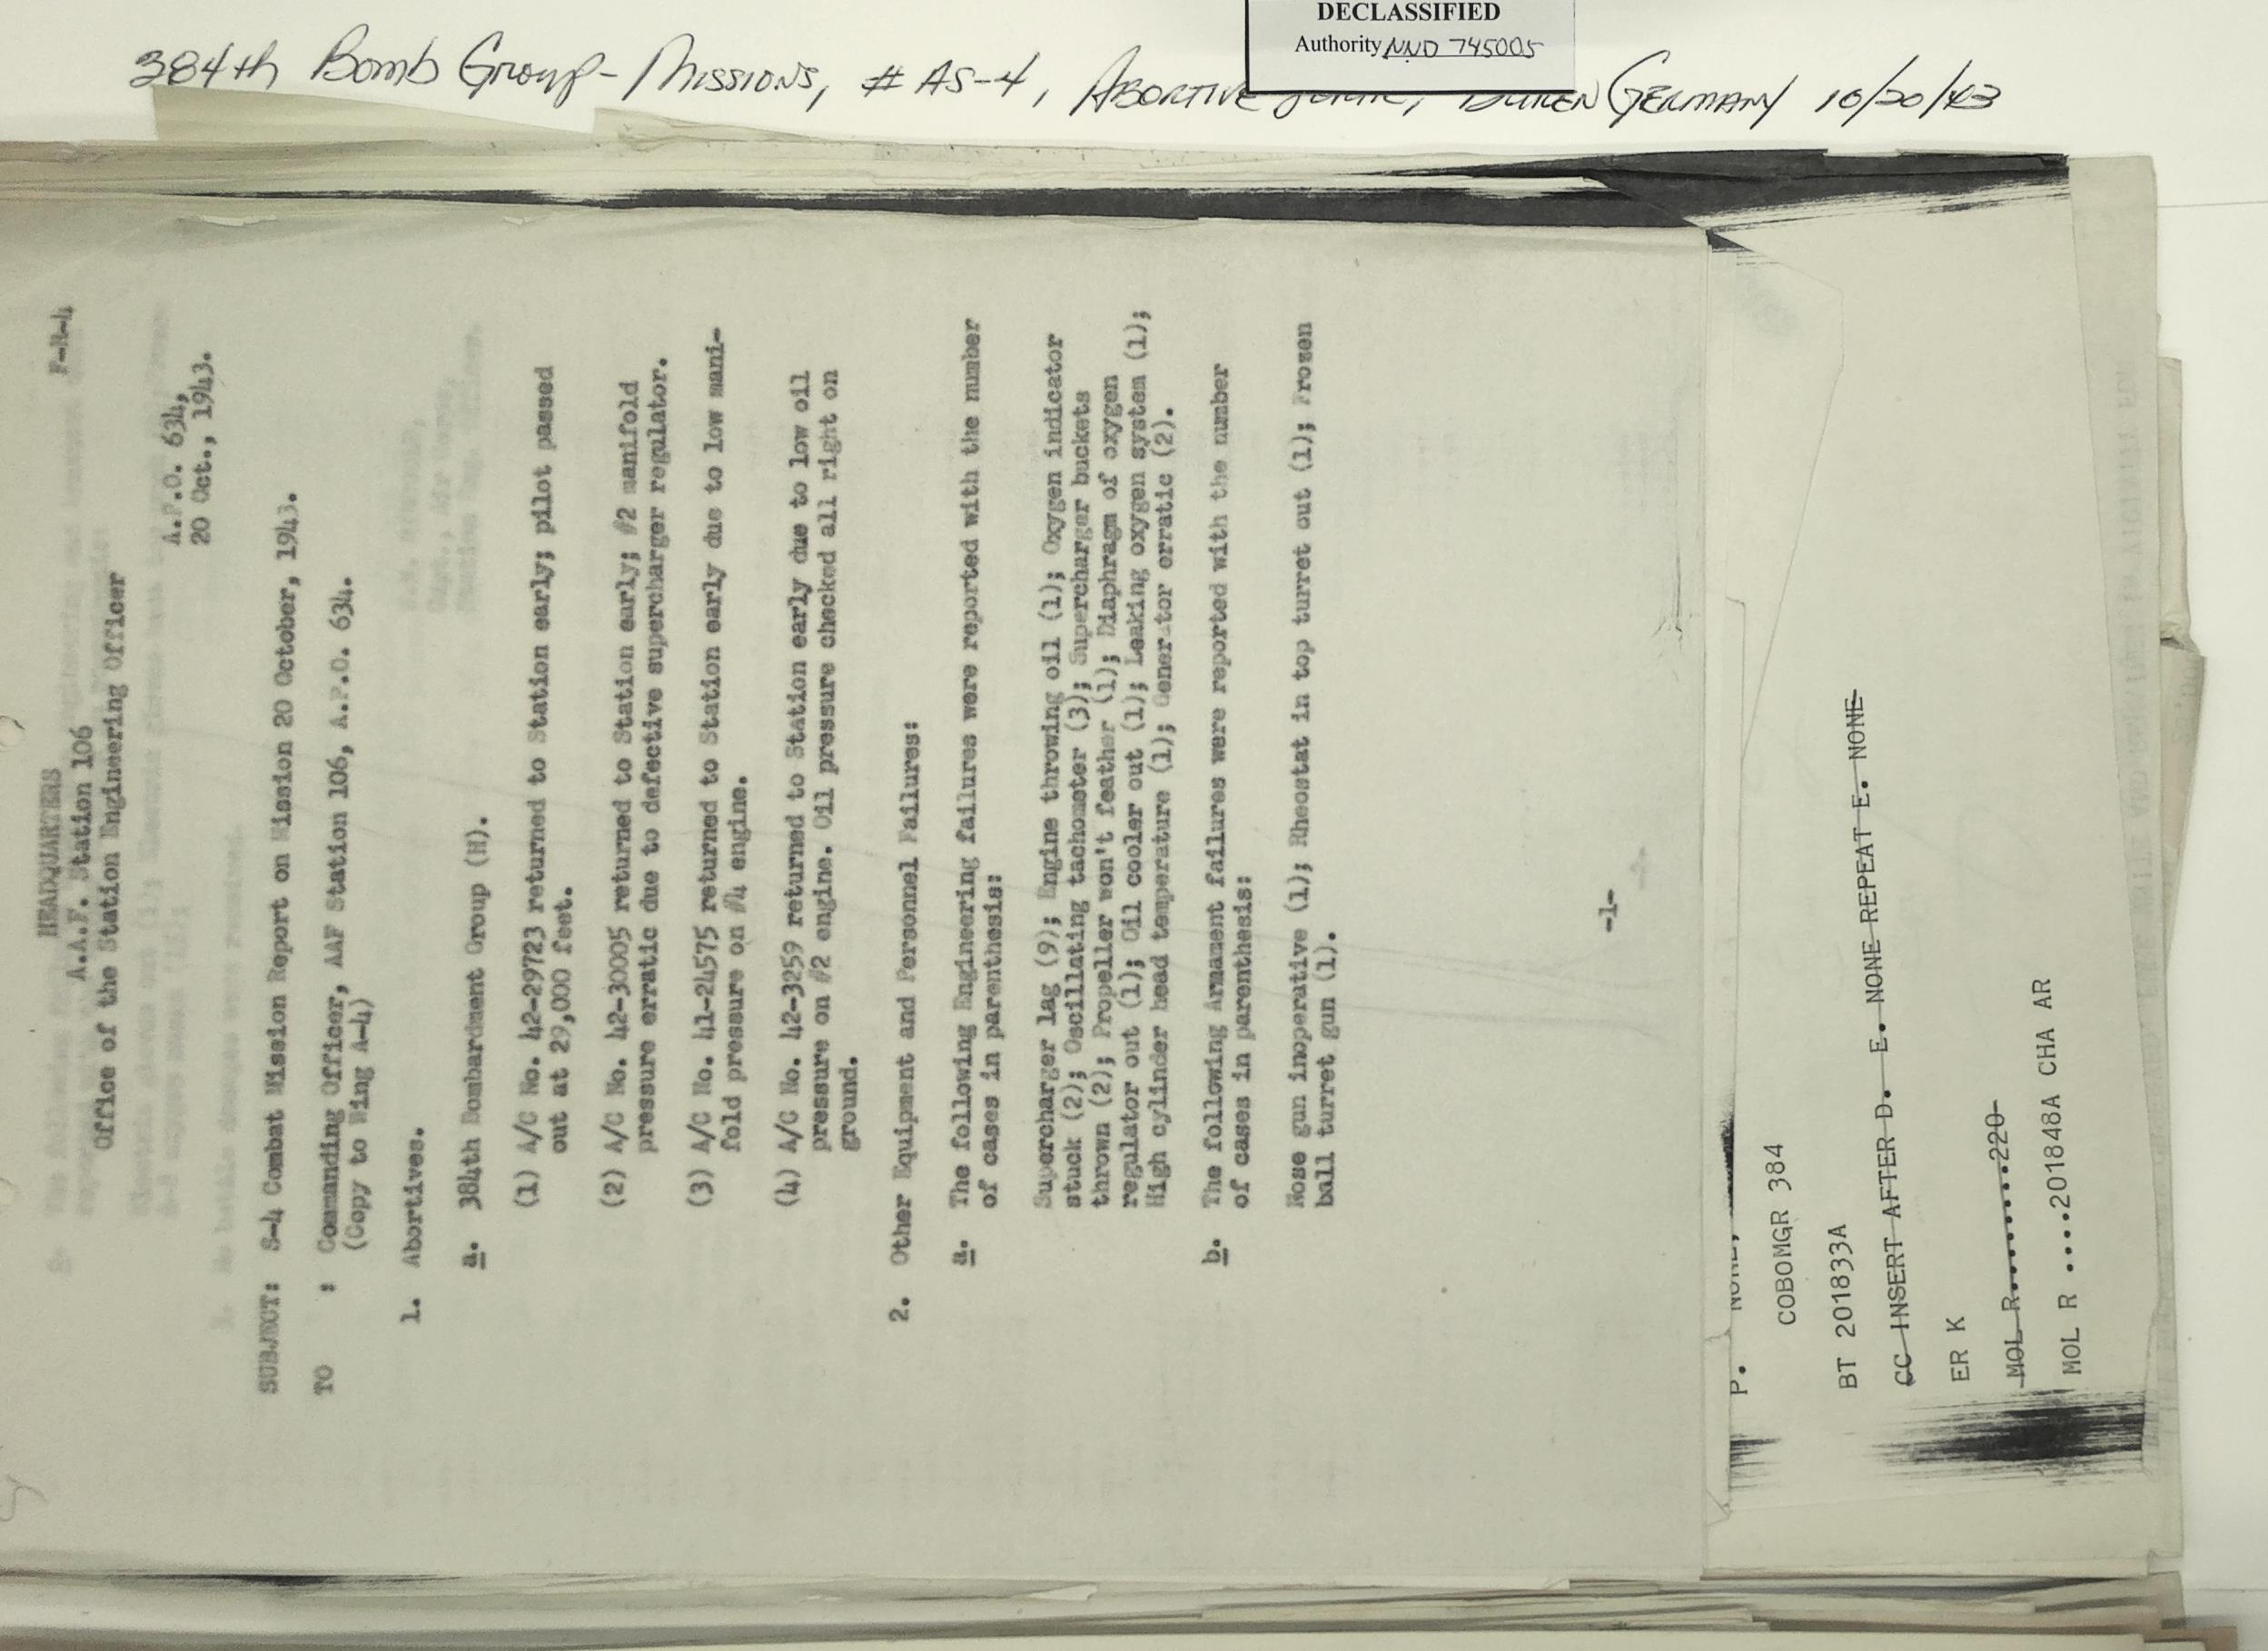 DECLASSIFIED
Authority NND 745005
384th Bomb Group - Missions, # AS-4, Abortive Germany 10/20/43
HEADQUARTERS F-R-4
A.A.F. Station 106
Office of the Station Engineering Officer
A.P.O. 634,
20 Oct., 1943.
SUBJECT: S-4 Combat Mission Report on Mission 20 October, 1943.
TO : Commanding Officer, AAF Station 106, A.P.O. 634.
(Copy to Wing A-4)
1. Abortives.
a. 384th Bombardment Group (H).
(1) A/C No. 42-29723 returned to Station early; pilot passed
out at 29,000 feet.
(2) A/C No. 42-30005 returned to Station early; #2 manifold
pressure erratic due to defective supercharger regulator.
(3) A/C No. 41-24575 returned to Station early due to low mani-
fold pressure on #4 engine.
(4) A/C No. 42-3259 returned to Station early due to low oil
pressure on #2 engine. Oil pressure checked all right on
ground.
2. Other Equipment and Personnel Failures:
a. The following Engineering failures were reported with the number
of cases in parenthesis:
Supercharger lag (9); Engine throwing oil (1); Oxygen indicator
stuck (2); Oscillating tachometer (3); Supercharger buckets
thrown (2); Propeller won't feather (1); Diaphragm of oxygen
regulator out (1); Oil cooler out (1); Leaking oxygen system (1);
High cylinder head temperature (1); Generator erratic (2).
b. The following Armament failures were reported with the number
of cases in parenthesis:
Nose gun inoperative (1); Rheostat in top turret out (1); Frozen
ball turret gun (1).
-1-
P.
COBOMGR 384
BT 201833A
CC INSERT AFTER D. E. NONE REPEAT E. NONE
ER K
MOL R........220
MOL R ....201848A CHA AR